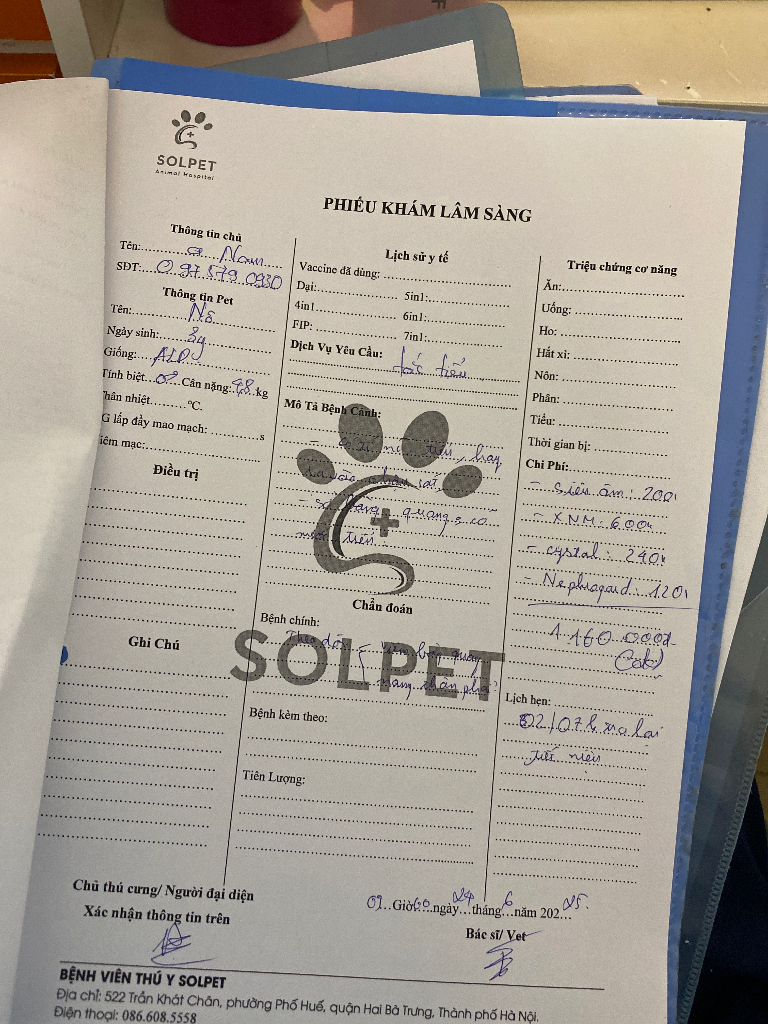 SOLPET
Animal Hospital
PHIẾU KHÁM LÂM SÀNG
Thông tin chủ
Tên: a Nam
SĐT: 097 579 0930
Thông tin Pet
Tên: Na
Ngày sinh: 3y
Giống: ALD
Tính biệt ♂ Cân nặng: 4,8 kg
Thân nhiệt °C.
G lấp đầy mao mạch: s
iêm mạc:
Điều trị
Ghi Chú
Lịch sử y tế
Vaccine đã dùng:
Dại: 5in1:
4in1 6in1:
FIP: 7in1:
Dịch Vụ Yêu Cầu: tắc tiểu
Mô Tả Bệnh Cảnh:
hay
cát
- bàng quang có
Chẩn đoán
SOLPET
Bệnh chính:
Theo dõi - viêm bàng quang
nang thận phải
Bệnh kèm theo:
Tiên Lượng:
Triệu chứng cơ năng
Ăn:
Uống:
Ho:
Hắt xì:
Nôn:
Phân:
Tiểu:
Thời gian bị:
Chi Phí:
- siêu âm: 200k
- XNM: 600k
- cystal: 240k
- Nephrogard: 120k
1.160.000đ
(ck)
Lịch hẹn:
02/07
Chủ thú cưng/ Người đại diện
Xác nhận thông tin trên
09 Giờ 60 ngày 24 tháng 6 năm 2025
Bác sĩ/ Vet
BỆNH VIỆN THÚ Y SOLPET
Địa chỉ: 522 Trần Khát Chân, phường Phố Huế, quận Hai Bà Trưng, Thành phố Hà Nội.
Điện thoại: 086.608.5558